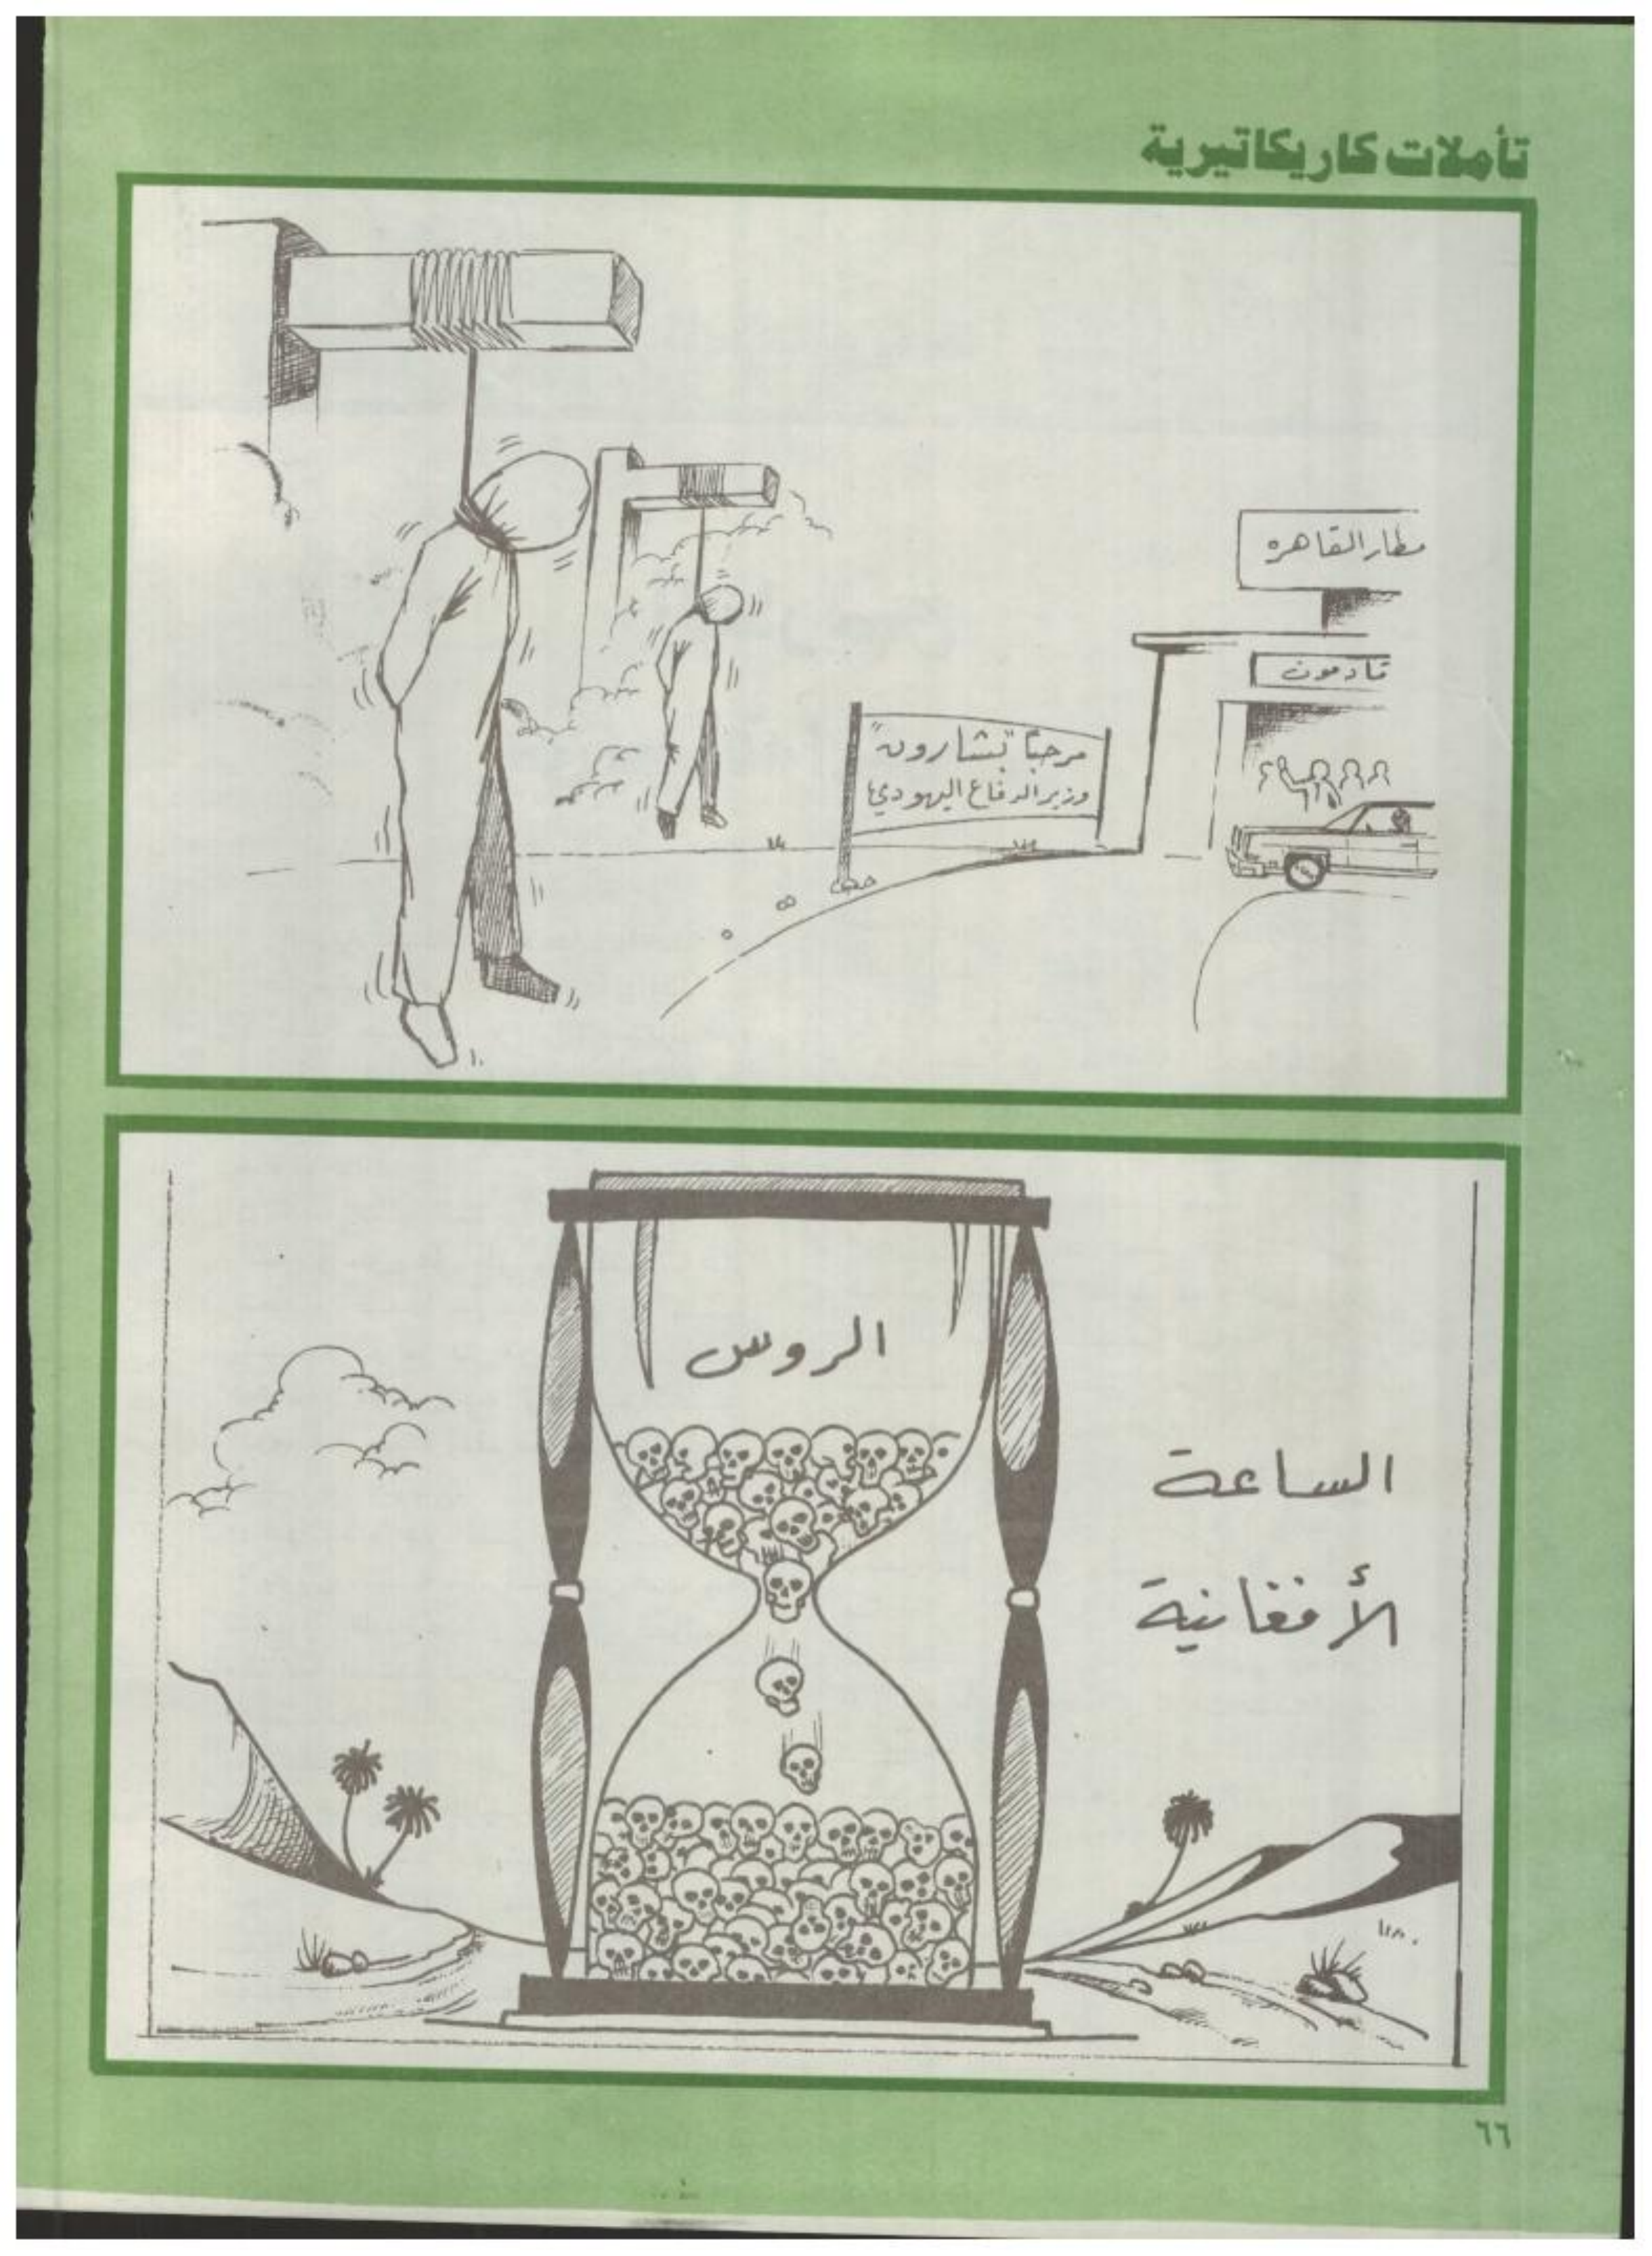 تأملات كاريكاتيرية
مطار القاهره
قادمون
مرحبًا "بشارون"
وزير الدفاع اليهودي
الروس
الساعة
الأفغانية
٦٦